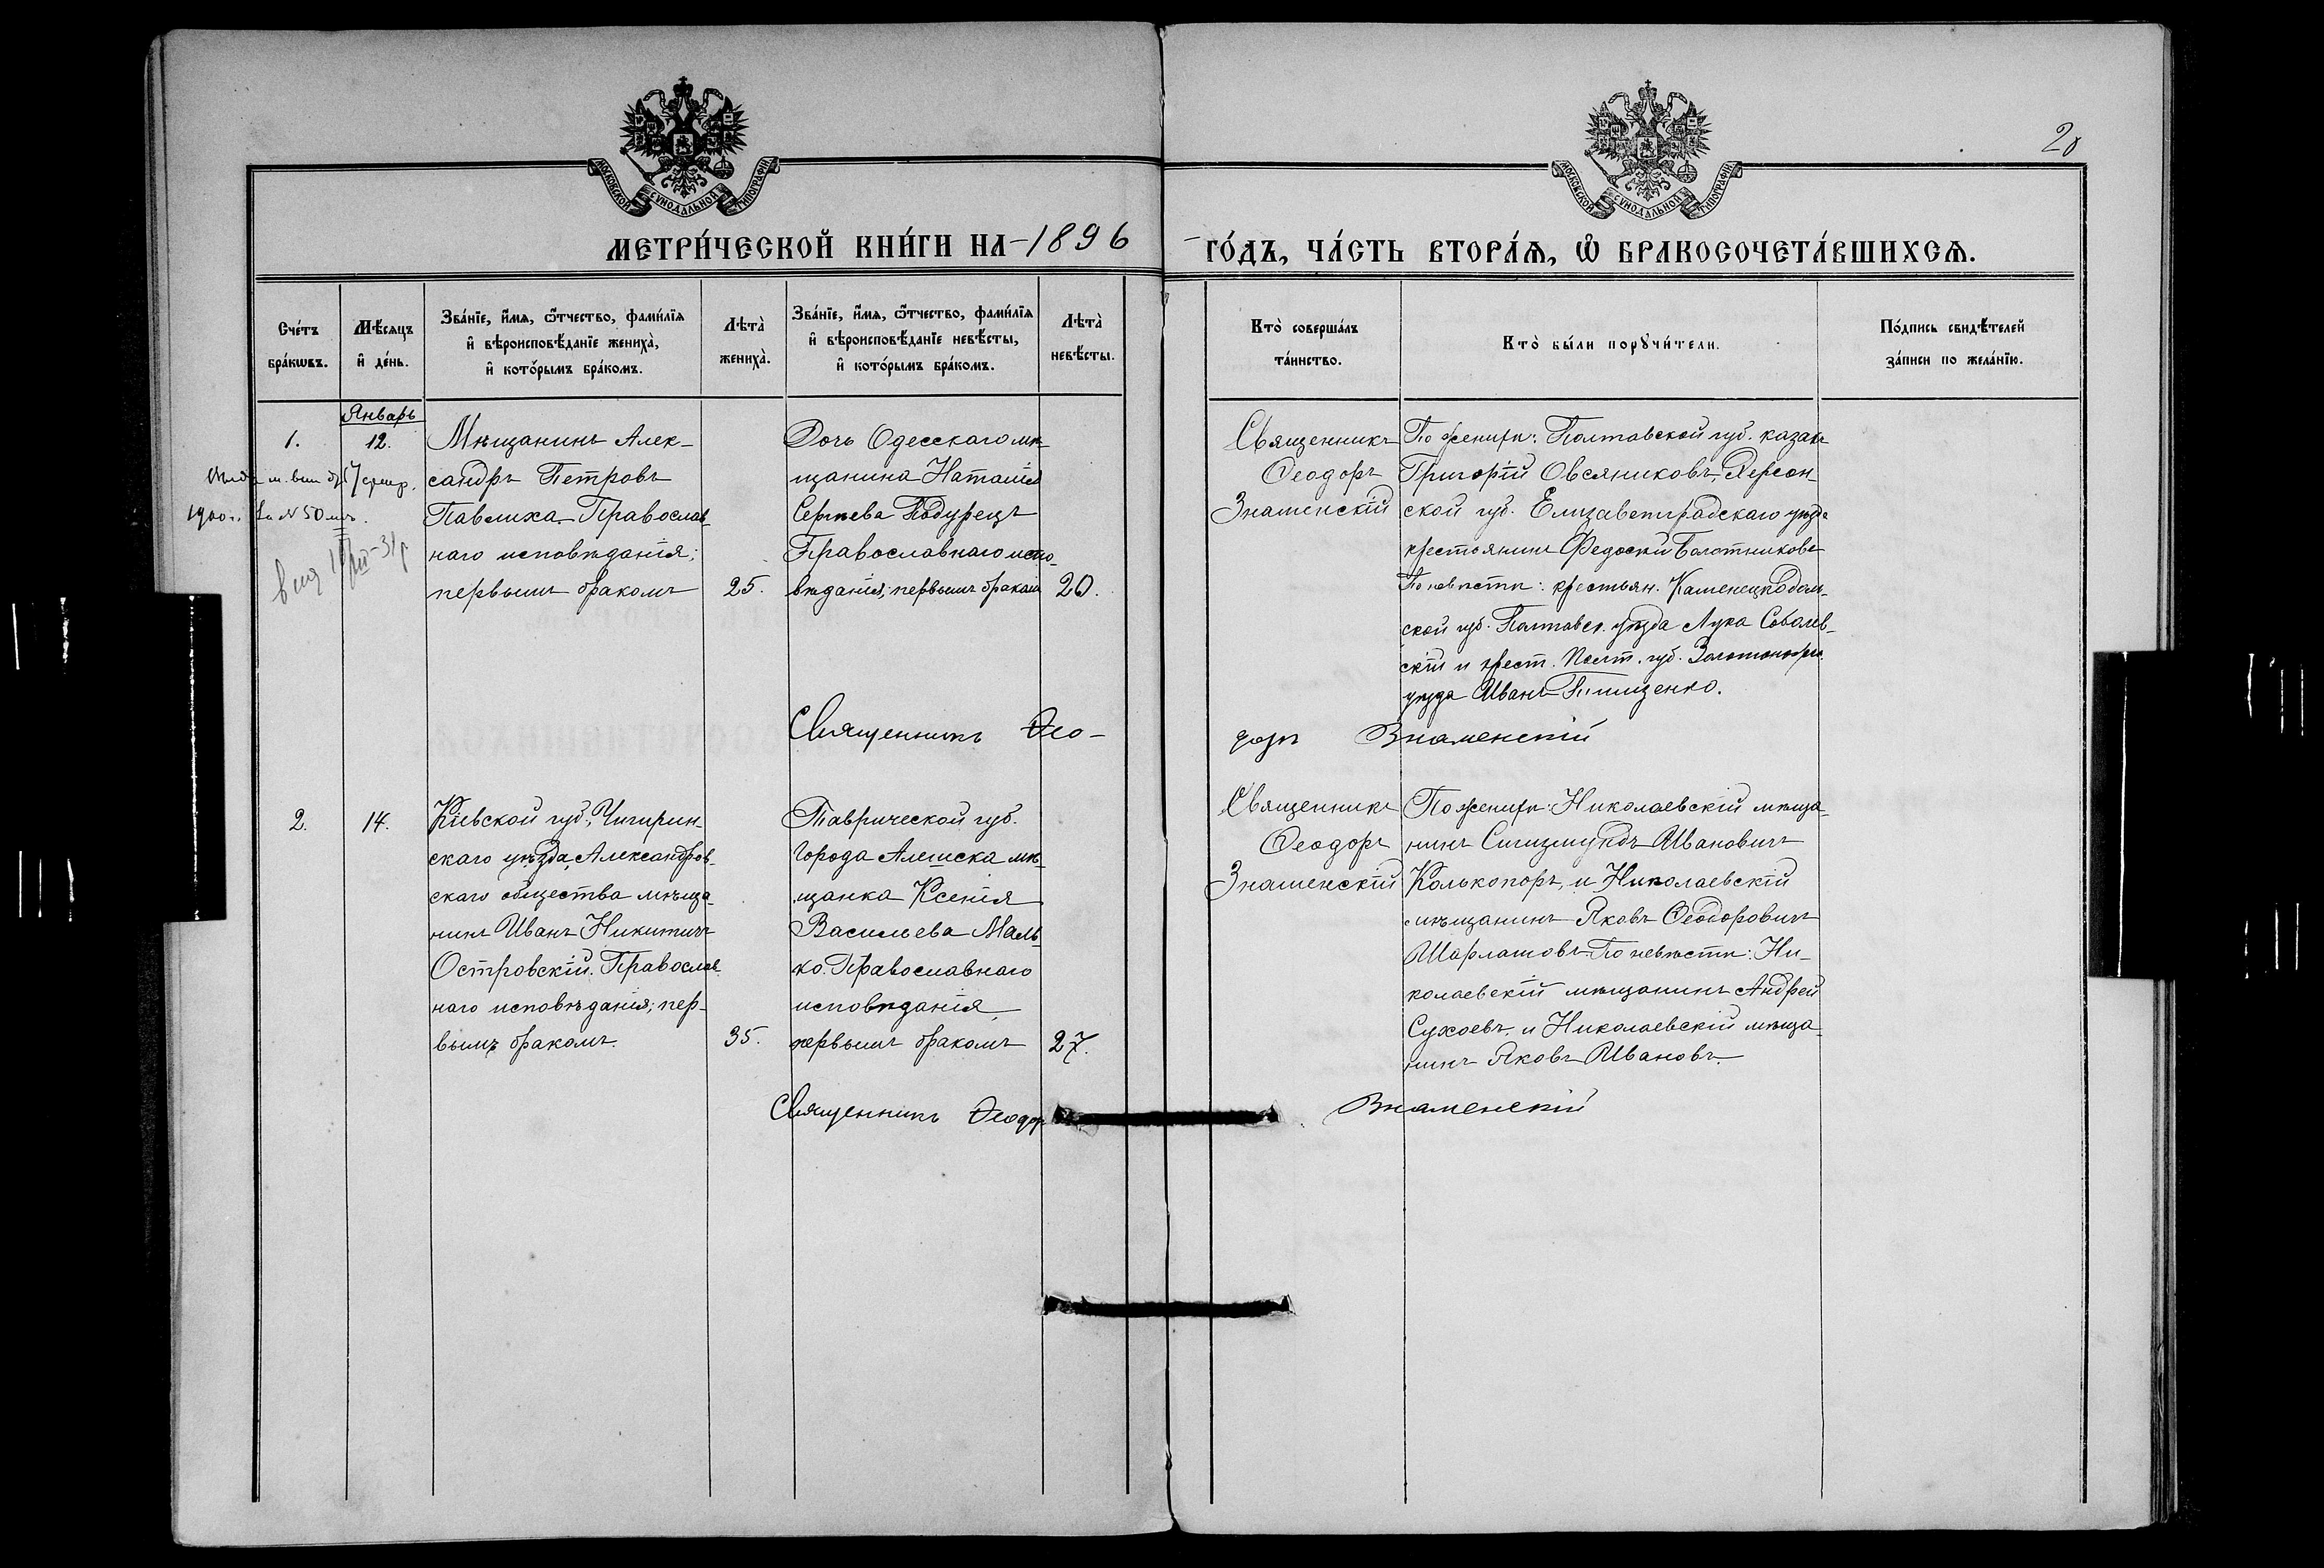 МОСКОВСКОЙ СѴНОДАЛЬНОЙ ТИПОГРАФІИ
МОСКОВСКОЙ СѴНОДАЛЬНОЙ ТИПОГРАФІИ
20
МЕТРИ́ЧЕСКОЙ КНИ́ГИ НА 1896 ГО́ДЪ, ЧА́СТЬ ВТОРА́Ѧ, Ѽ БРАКОСОЧЕТА́ВШИХСѦ.
Сче́тъ
бра́кѡвъ.
Мѣ́сяцъ
и҆ де́нь.
Зва́нїе, и҆́мя, ѻ҆́тчество, фами́лїя
и҆ вѣроисповѣ́данїе жениха̀,
и҆ кото́рымъ бра́комъ.
Лѣта̀
жениха̀.
Зва́нїе, и҆́мя, ѻ҆́тчество, фами́лїя
и҆ вѣроисповѣ́данїе невѣ́сты,
и҆ кото́рымъ бра́комъ.
Лѣта̀
невѣ́сты.
Кто̀ соверша́лъ
та́инство.
Кто̀ бы́ли порꙋчи́тели.
По́дпись свидѣ́телей
за́писи по жела́нїю.
Январь
1.
12.
1900 г. За № 50
Мѣщанинъ Алек-
сандръ Петровъ
Павлиха Православ-
наго исповѣданія;
первымъ бракомъ
25.
Дочь Одесскаго мѣ-
щанина Наталія
Сергѣева Подурецъ
Православнаго испо-
вѣданія; первымъ бракомъ
20.
Священникъ
Ѳеодоръ
Знаменскій
По женихѣ: Полтавской губ. казакъ
Григорій Овсяниковъ, Херсон-
ской губ. Елизаветградскаго уѣзда
крестьянинъ Федосій Болотниковъ
По невѣстѣ: крестьян. Каменецкподоль-
ской губ. Полтавск. уѣзда Лука Соболев-
скій и крест. Полт. губ. Золотонош.
уѣзда Иванъ Тищенко.
Священникъ Ѳео-
доръ Знаменскій
2.
14.
Кіевской губ., Чигирин-
скаго уѣзда, Александров-
скаго общества мѣща-
нинъ Иванъ Никитичъ
Островскій. Православ-
наго исповѣданія; пер-
вымъ бракомъ.
35.
Таврической губ.
города Алешска мѣ-
щанка Ксенія
Васильева Маль-
ко. Православнаго
исповѣданія
первымъ бракомъ
27.
Священникъ
Ѳеодоръ
Знаменскій
По женихѣ: Николаевскій мѣща-
нинъ Сигизмундъ Ивановичъ
Колькопоръ, и Николаевскій
мѣщанинъ Яковъ Ѳеодоровичъ
Шарлатовъ. По невѣстѣ: Ни-
колаевскій мѣщанинъ Андрей
Сухоевъ, и Николаевскій мѣща-
нинъ Яковъ Ивановъ.
Священникъ Ѳеодор Знаменскій